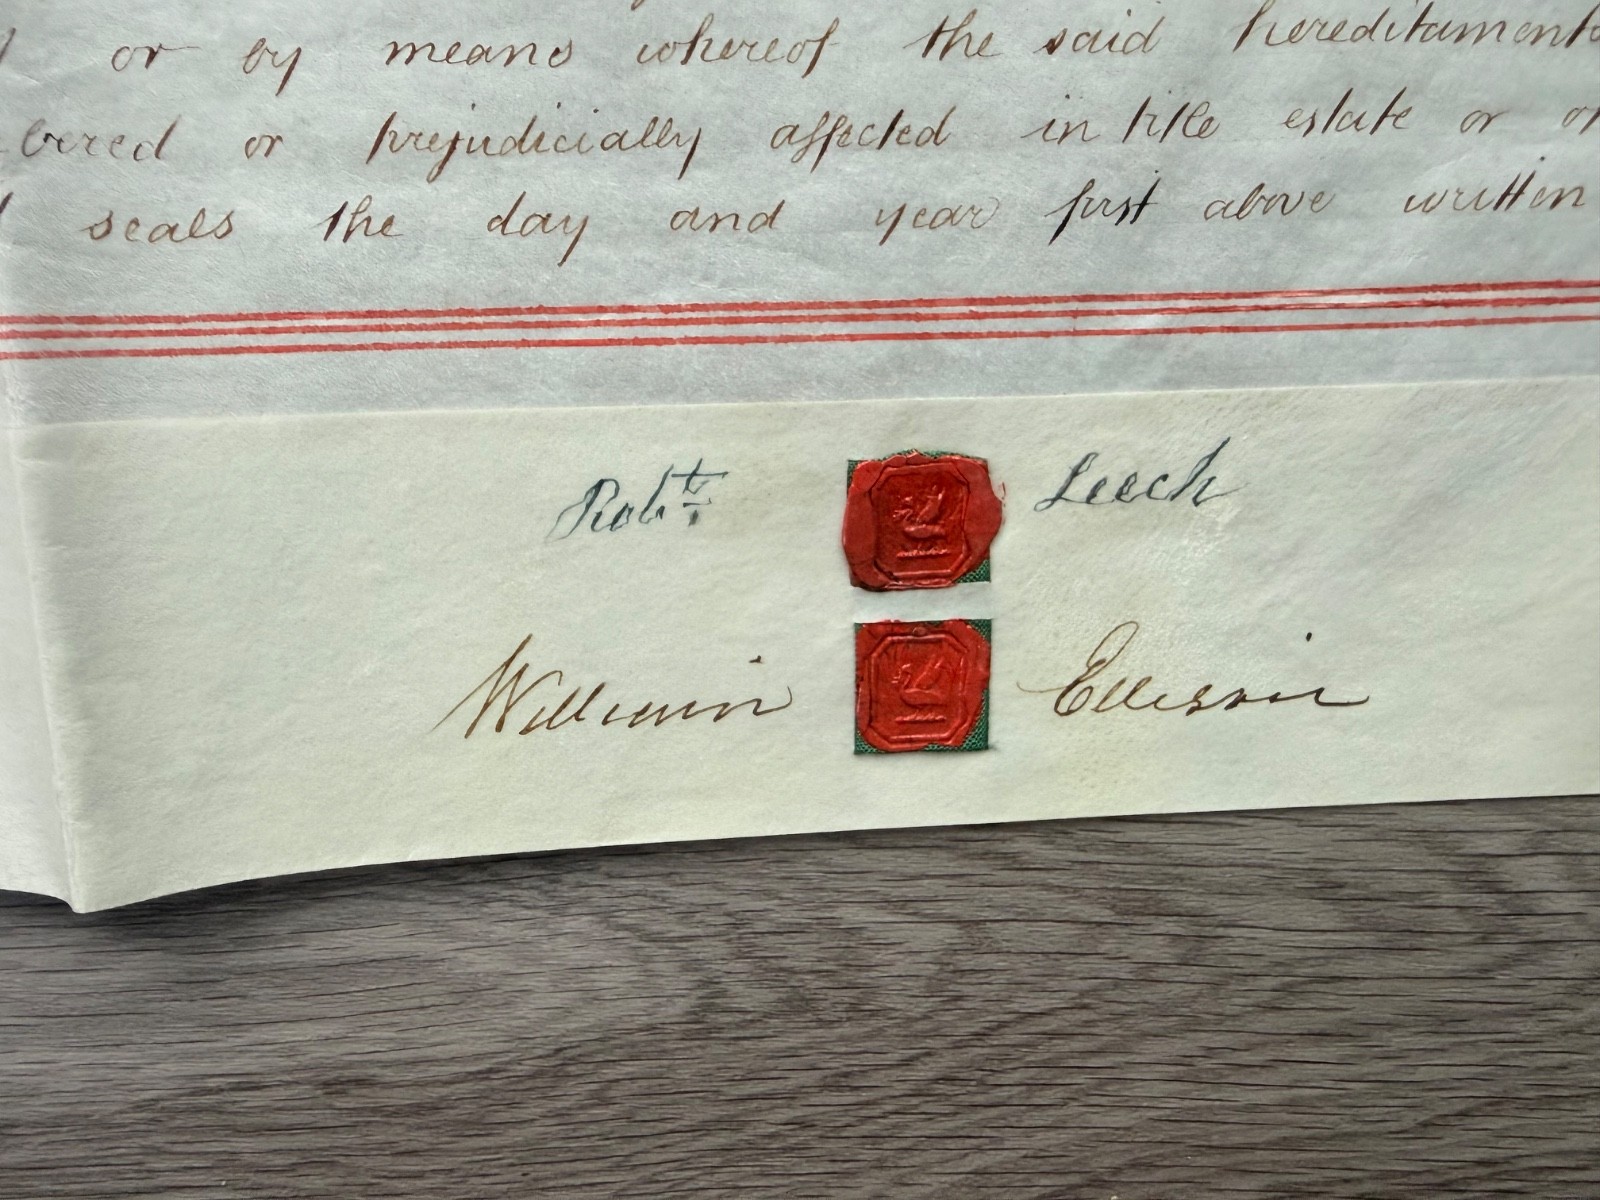 or by means whereof the said hereditaments
bered or prejudicially affected in title estate or
seals the day and year first above written
Robt Leech
William Ellison